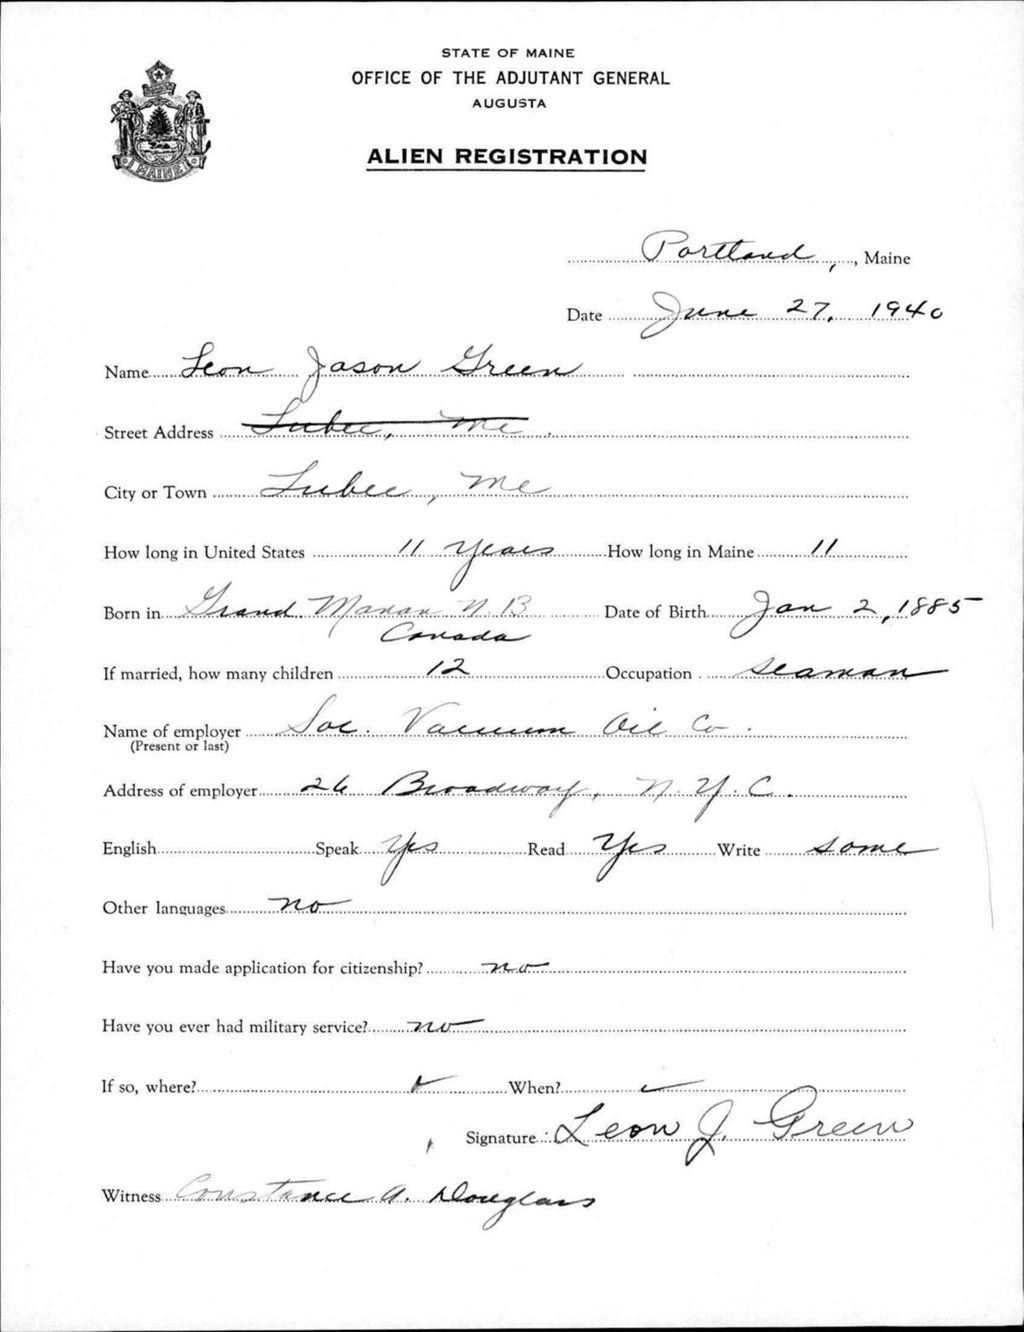 STATE OF MAINE
OFFICE OF THE ADJUTANT GENERAL
AUGUSTA
ALIEN REGISTRATION
MAINE
Portland, , Maine
Date June 27, 1940
Name Leon Jason Green
Street Address Lubec, Me.
City or Town Lubec, Me
How long in United States 11 years How long in Maine 11
Born in Grand Manan N B Date of Birth Jan 2, 1885
Canada
If married, how many children 12 Occupation seaman
Name of employer Soc. Vacuum Oil Co.
(Present or last)
Address of employer 26 Broadway, N.Y.C.
English Speak Yes Read Yes Write some
Other languages no
Have you made application for citizenship? no
Have you ever had military service? no
If so, where? When?
Signature Leon J. Green
Witness Constance A. Douglass